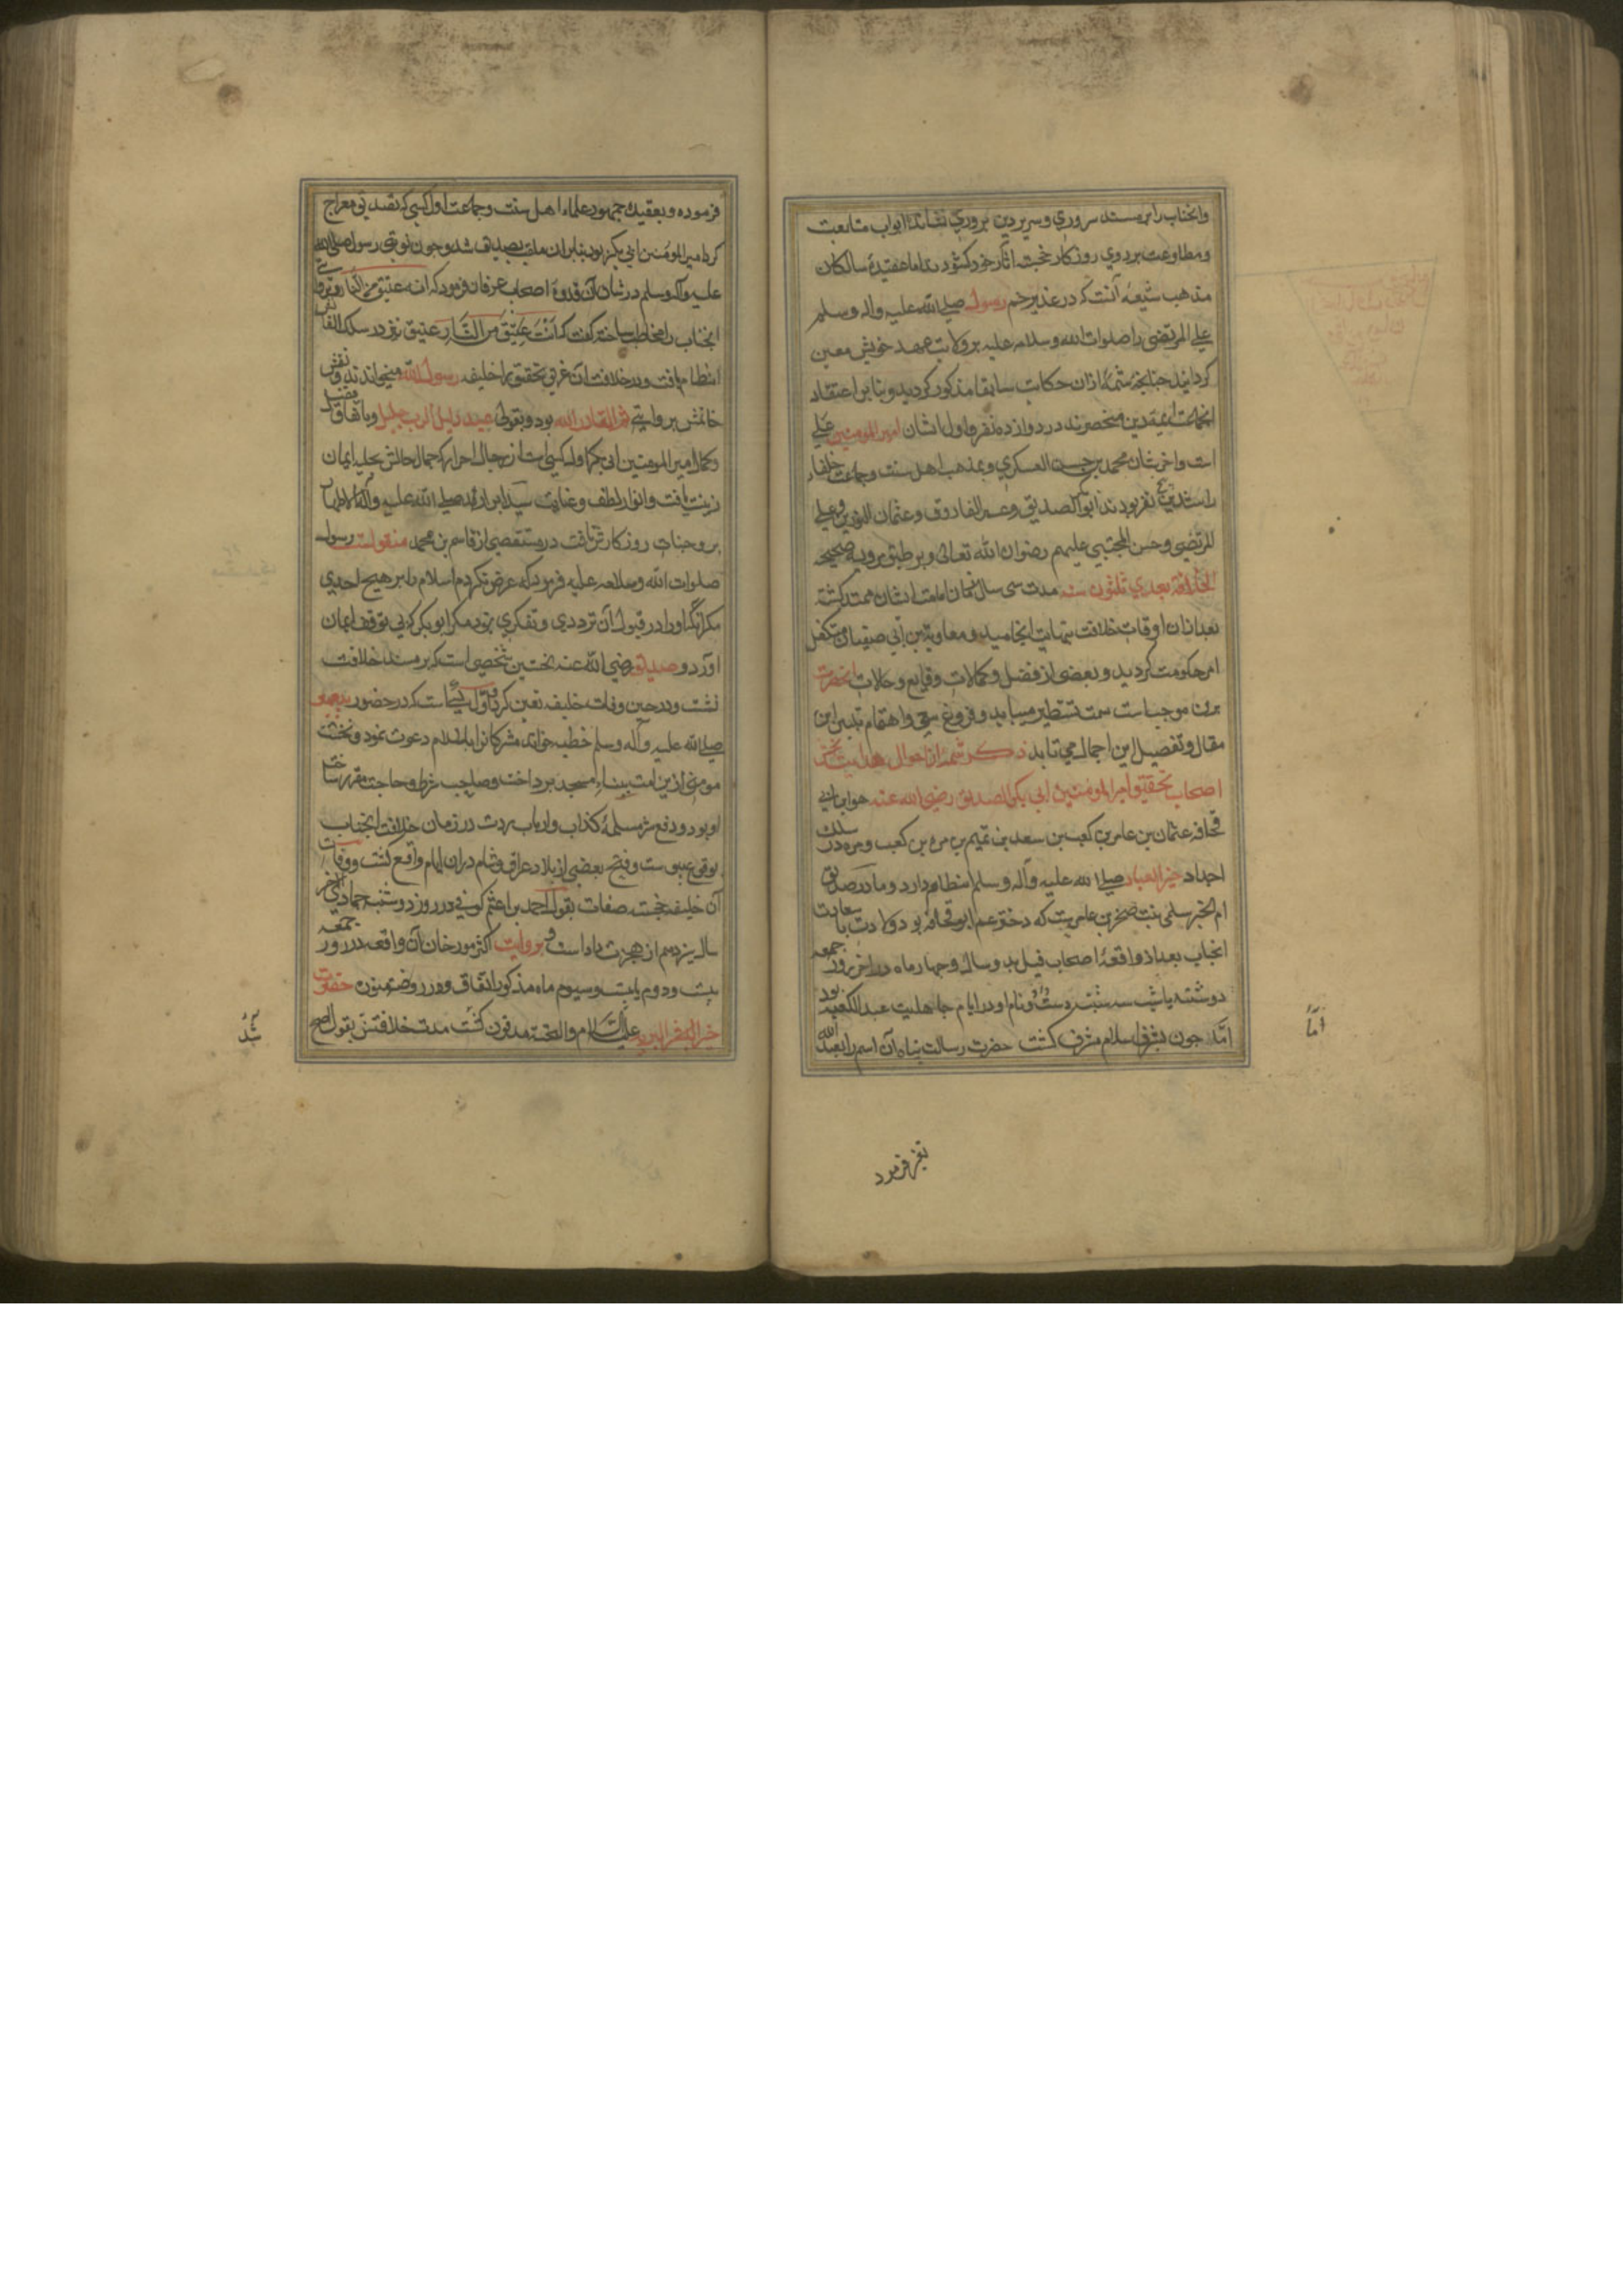 وانجناب را بر مسند سروري و سرير دين پروري نشاند ابواب متابعت
ومطاوعت بر روي روزكار خجسته آثار خود كشودند اما عقيدهٔ سالكان
مذهب شيعه آنست كه در غدير خم رسول صلي الله عليه واله وسلم
علي المرتضي را صلوات الله وسلامه عليه بر ولايت عهد خويش معين
كردانيد چنانچه شمهٔ ازان حكايت سابقا مذكور كرديد و بنا بر اعتقاد
ائمهٔ دين منحصرند در دوازده نفر و اول ايشان امير المومنين علي
است واخر يشان محمد بن حسن العسكري و بمذهب اهل سنت وجماعت خلفاء
راشدين پنج نفر بودند ابوبكر الصديق وعمر الفاروق وعثمان ذو النورين وعلي
المرتضي وحسن المجتبي عليهم رضوان الله تعالي وبر طبق مرويه صحيحه
الخلافة بعدي ثلثون سنه مدت سي سال زمان امامت ايشان ممتد كشته
بعد ازان اوقات خلافت بنهايت انجاميد ومعاوية بن ابي صفيان متكفل
امر حكومت كرديد وبعضي از فضل وكمالات و وقايع وحالات انحضرت
برين موجب است سمت تسطير ميبابد وفروغ سعي واهتمام بتبيين اين
مقال وتفصيل اين اجمال مي تابد ذكر شمهٔ از احوال هدايت بخش
اصحاب تحقيق امير المؤمنين ابي بكر الصديق رضي الله عنه هو ابن ابي
قحافه عثمان بن عامر بن كعب بن سعد بن تميم بن مره بن كعب ومره در سلك
اجداد خير العباد صلي الله عليه وآله وسلم انتظام دارد ومادر صديق
ام الخير سلمي بنت صخر بن عامرست كه دختر عم ابو قحافه بود ولادت با سعادت
انجناب بعد از واقعهٔ اصحاب فيل بدو سال وچهار ماه در اخر روز جمعه
دوشنبه يا شب سه شنبه دست داد و نام او در ايام جاهليت عبد الكعبه بود
امّا چون بشرف اسلام مشرف كشت حضرت رسالت پناه آن اسم را بعبد الله
امّا
تغير فرمود
فرموده و بعقيدهٔ جمهور علماء اهل سنت وجماعت اول كسي كه تصديق معراج
كرد امير المؤمنين ابي بكر بود بنابران ملقب بصديق شد وچون نوبتي رسول صلي الله
عليه وآله وسلم در شان آن قدوهٔ اصحاب عرفان فرمود كه انه عتيق من النار ونوبتي
انجناب را مخاطب ساخته كفت كه انت عتيق من النار عتيق نيز در سلك القابش
انتظام يافت ودر خلافت آن غريق تحقيق را خليفه رسول الله ميخواندند ونقش
خاتمش بروايتي نعم القادر الله بود و بقولي عبد ذليل لرب جليل وباتفاق
وكمال امير المومنين ابي بكر اول كسي ست از رجال احرار كه جمال حالش بحليه ايمان
زينت يافت وانوار لطف وعنايت سيد ابرار صلي الله عليه وآله الاطهار
بر وجنات روزكارش تافت در مستقصي از قاسم بن محمد منقولست رسول
صلوات الله وسلامه عليه فرمود كه عرض نكردم اسلام را بر هيچ احدي
مكر آنكه او را در قبول آن ترددي وتفكري بود مكر ابو بكر كه بي توقف ايمان
آورد و صديق رضي الله عنه نخستين شخصي است كه بر مسند خلافت
نشست ودر حين وفات خليفه تعين كرد و اول كسي است كه در حضور
صلي الله عليه وآله وسلم خطبه خوانده مشركانرا باسلام دعوت نمود ونخست
مومني ازين امت ببناء مسجد پرداخت
او بود ودفع شر مسيلمهٔ كذاب وارباب ردت در زمان خلافت انجناب
بوقوع پيوست و فتح بعضي از بلاد عراق وشام دران ايام واقع كشت ووفات
آن خليفه خجسته صفات بقول احمد بن اعثم كوفي در روز دوشنبه جمادي الاخر
سال سيزدهم از هجرت داد است و بروايت اكثر مورخان آن واقعه در روز جمعه
بيست ودوم يا بيست وسيوم ماه مذكور اتفاق و در روضه حضرت
خير البريه عليه السلام والتحيه مدفون كشت مدت خلافتش بقول اصح